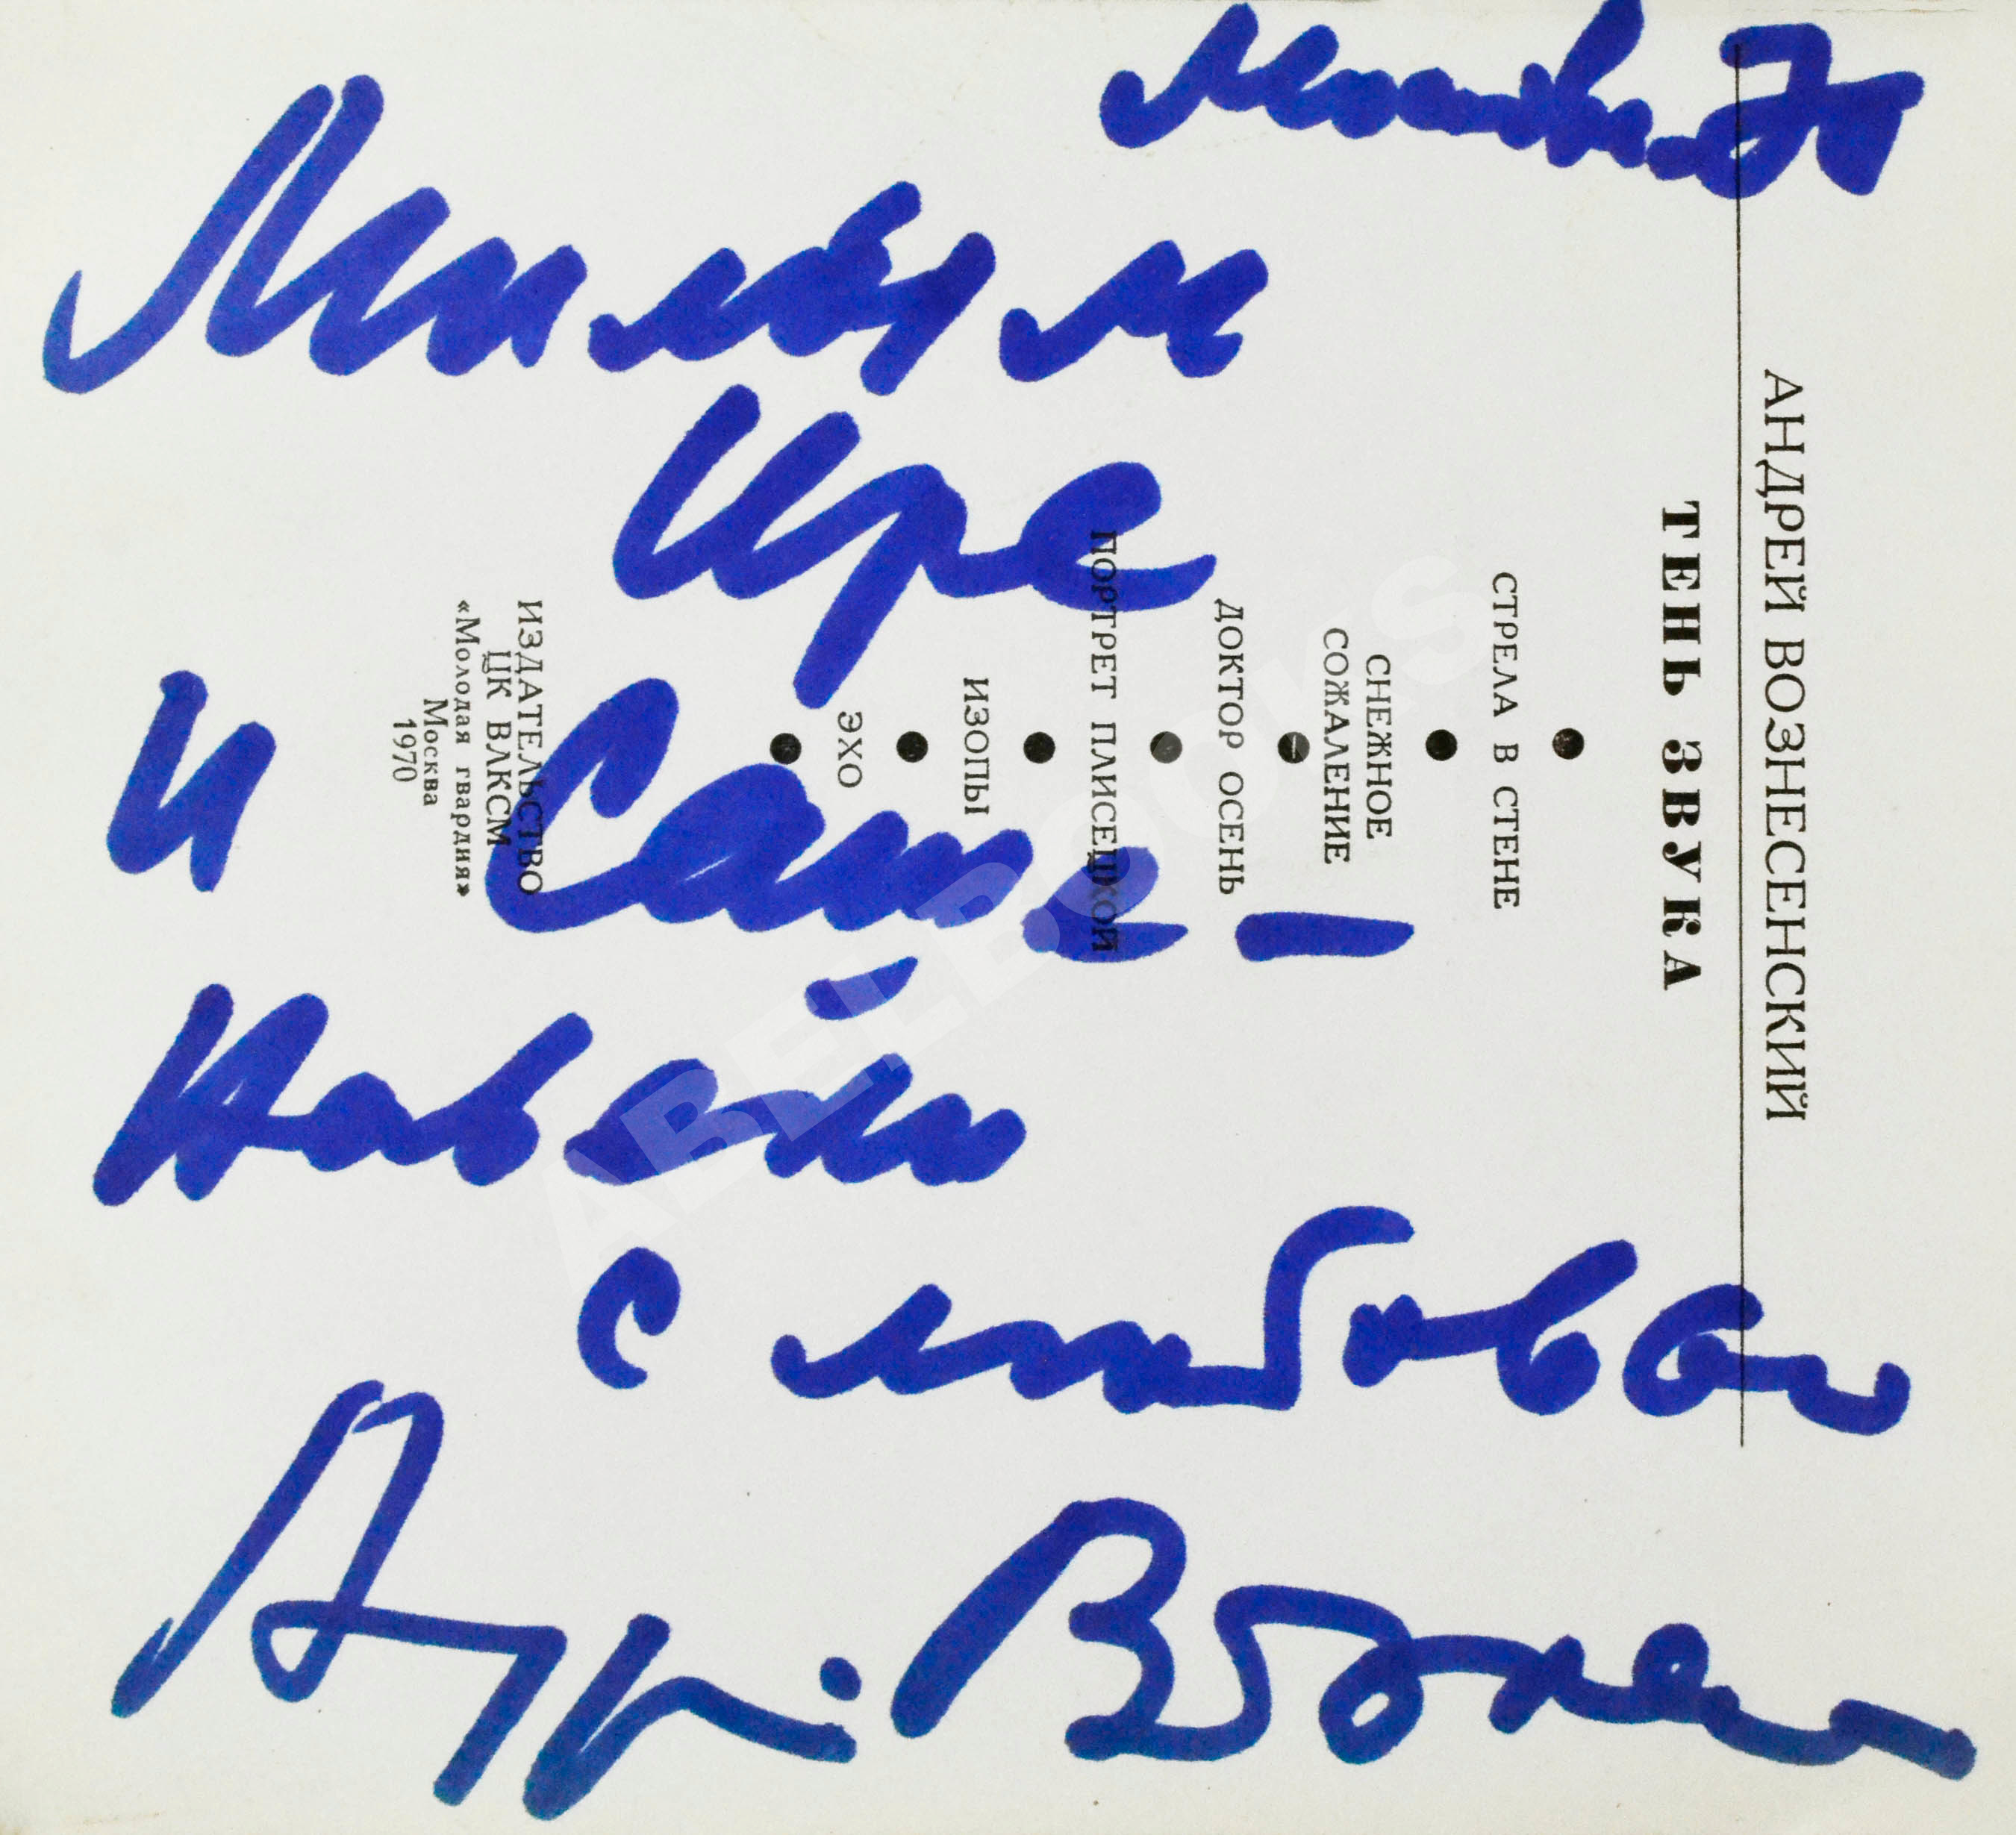 Милым
Ире
и Саше —
с любовью
Андр. Вознес
АНДРЕЙ ВОЗНЕСЕНСКИЙ
ТЕНЬ ЗВУКА
СТРЕЛА В СТЕНЕ
СНЕЖНОЕ
СОЖАЛЕНИЕ
ДОКТОР ОСЕНЬ
ПОРТРЕТ ПЛИСЕЦКОЙ
ИЗОПЫ
ЭХО
ИЗДАТЕЛЬСТВО
ЦК ВЛКСМ
«Молодая гвардия»
Москва
1970
ABELBOOKS